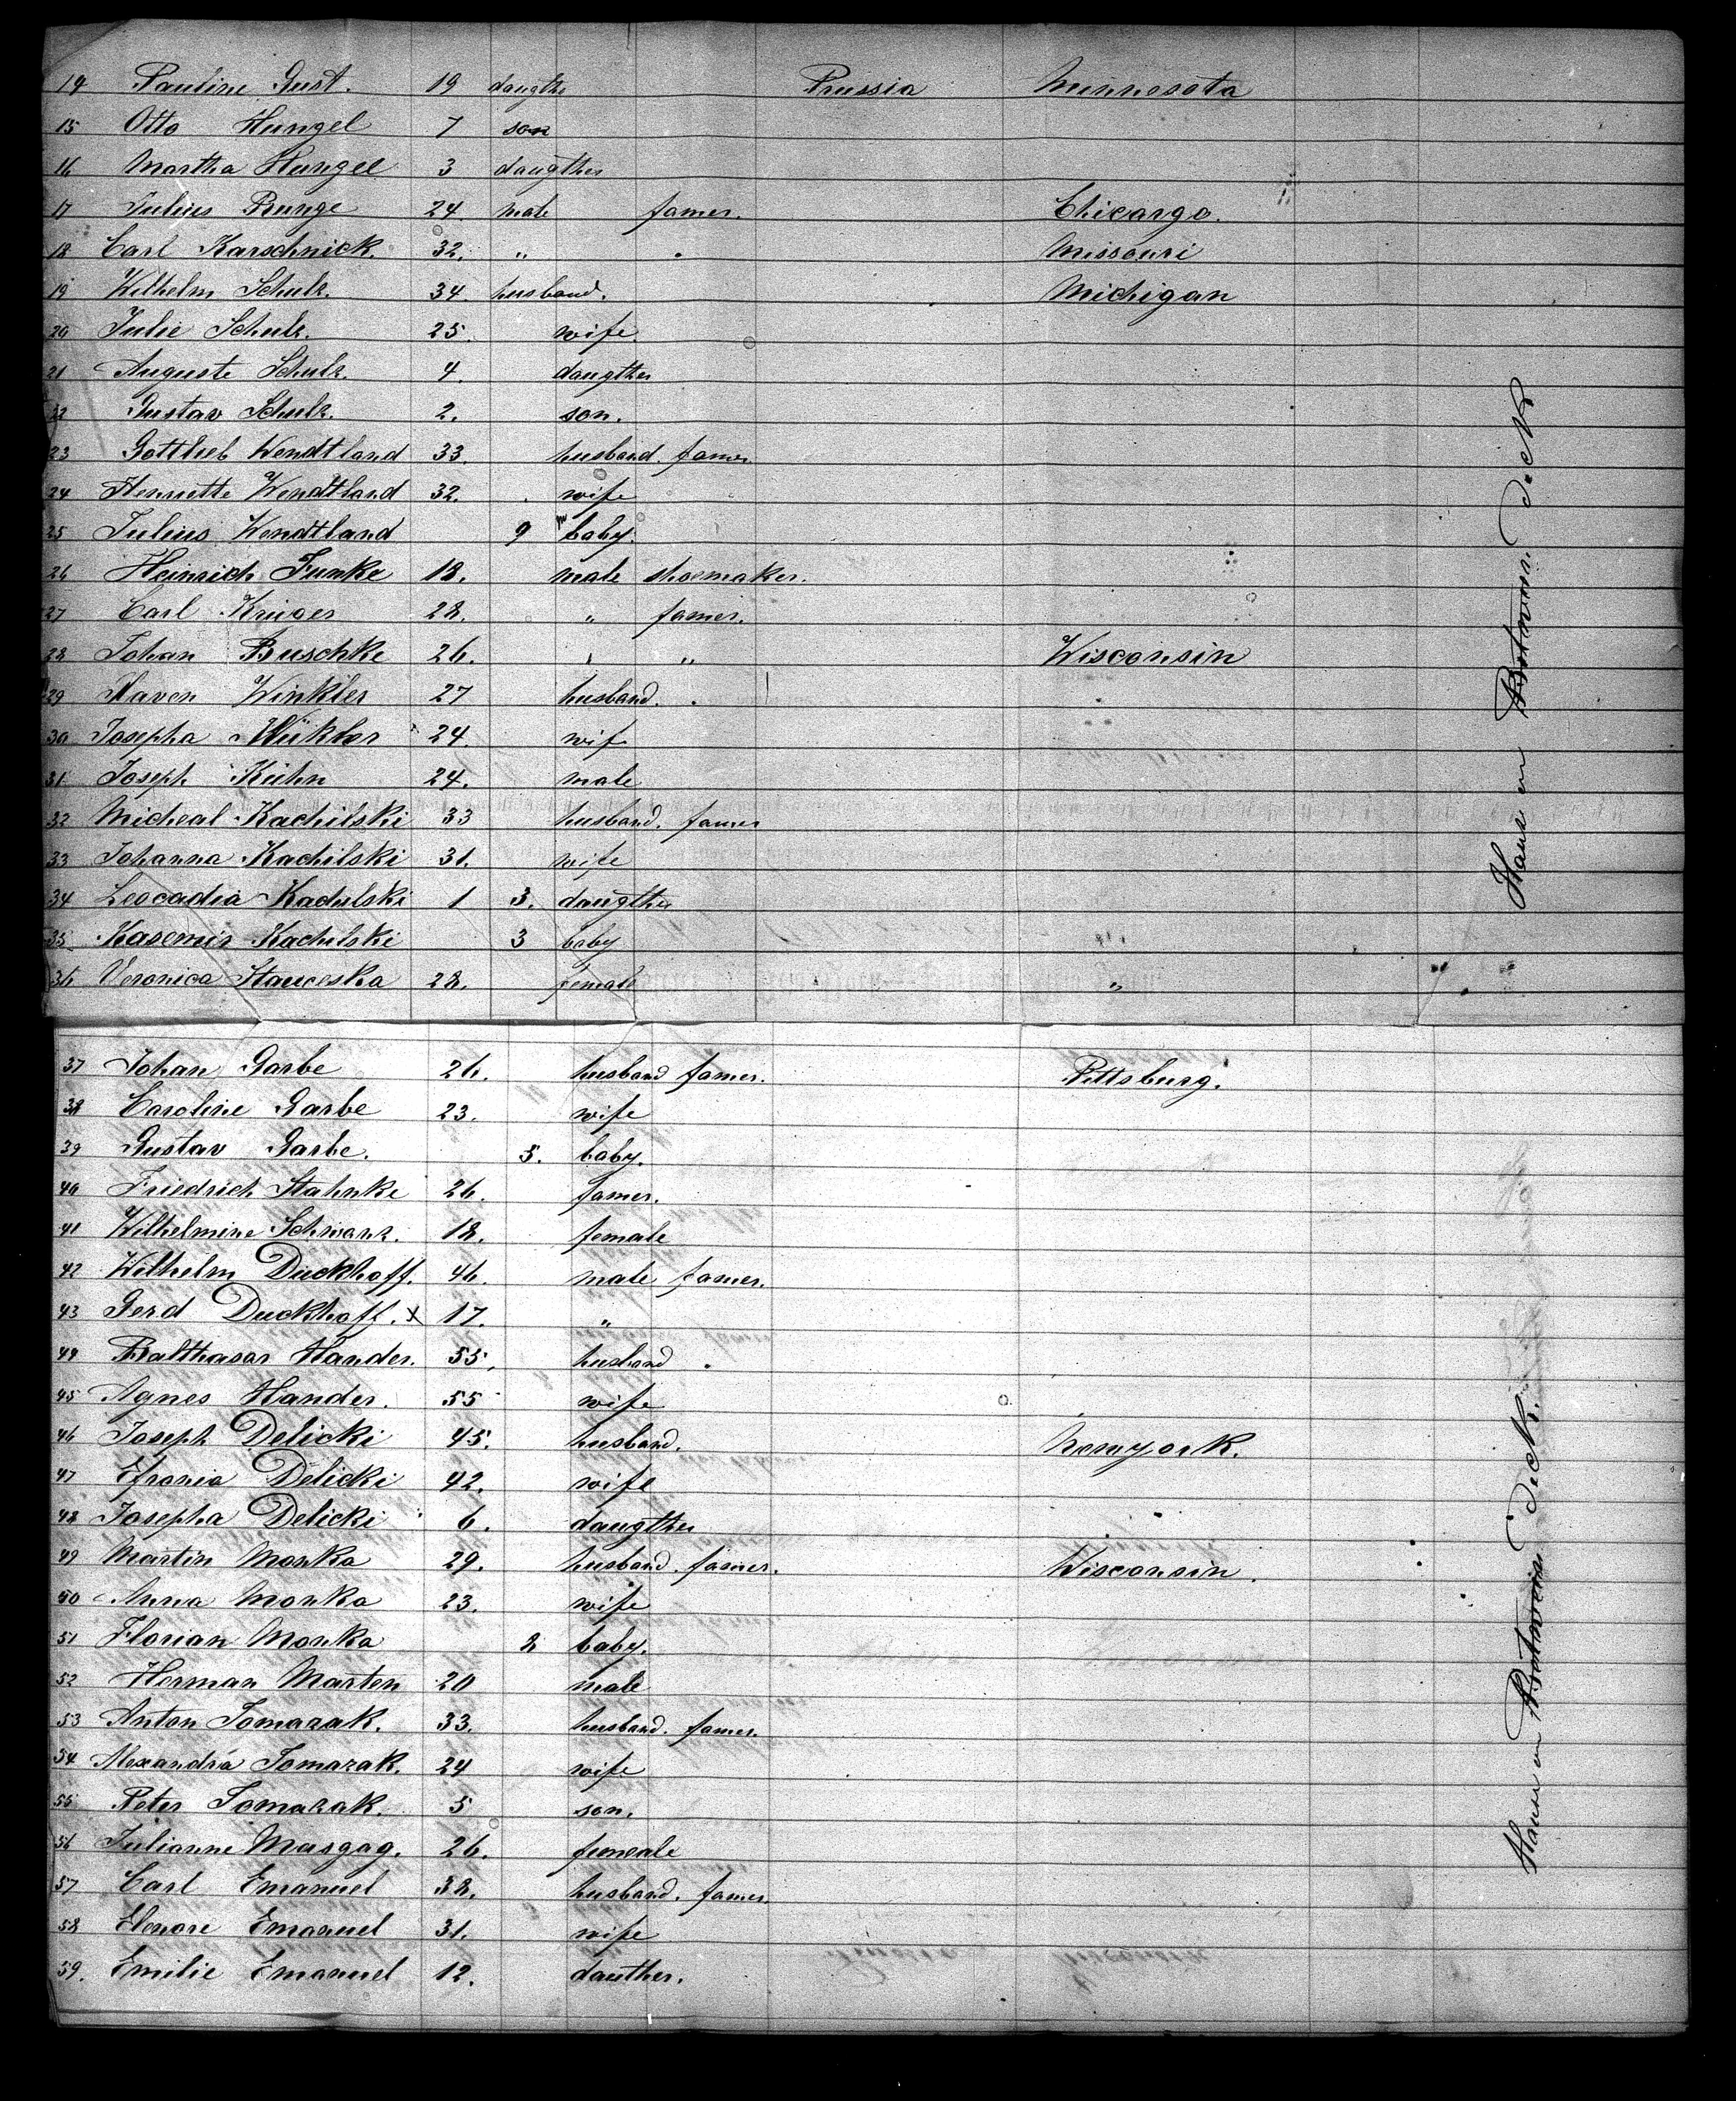 14 Pauline Gust. 19 daugthe Prussia Minnesota
15 Otto Hungel 7 son
16 Martha Hungel 3 daugther
17 Julius Runge 24. male famer. Chicargo.
18 Carl Karschnick. 32. " . Missouri
19 Wilhelm Schulz. 34. husband. Michigan
20 Julie Schulz. 25. wife.
21 Auguste Schulz. 4. daugther
22 Gustav Schulz. 2. son.
23 Gottlieb Wendtland 33. husband. famer
24 Henriette Wendtland 32. wife
25 Julius Wendtland 9 baby.
26 Heinrich Funke 18. male shoemaker.
27 Carl Krüger 28. " famer.
28 Johan Buschke 26. " " Wisconsin
29 Xaven Winkler 27 husband. .
30 Josepha 24. wif
31 Joseph Kühn 24. male
32 Micheal Kachilski 33 husband. famer
33 Johanna Kachilski 31. wife
34 Leocadia Kachilski 1 3. daugther
35 Kasemir Kachilski 3 baby
36 Veronica 28. female "
37 Johan Garbe 26. husband famer. Pittsburg.
38 Caroline Garbe 23. wife
39 Gustav Garbe. 5. baby.
40 Friedrich Stahnke 26. famer.
41 Wilhelmine Schwarz. 18. female
42 Wilhelm Duckhoff. 46. male famer.
43 Gerd Duckhoff. x 17. "
44 Balthasar Hander. 55. husband .
45 Agnes Hander. 55 wife
46 Joseph Delicki 45. husband. Newyork.
47 Delicki 42. wife
48 Josepha Delicki 6. daugther
49 Martin Monka 29. husband. famer. Wisconsin.
50 Anna Monka 23. wife
51 Florian Monka 2 baby.
52 Herman Marten 20 male
53 Anton Tomazak. 33. husband. famer.
54 Alexandria Tomazak. 24 wife
55 Peter Tomazak. 5 son.
56 Julianne Masgag. 26. femeale
57 Carl Emanuel 38. husband. famer.
58 Elenore Emanuel 31. wife
59. Emilie Emanuel 12. dauther.